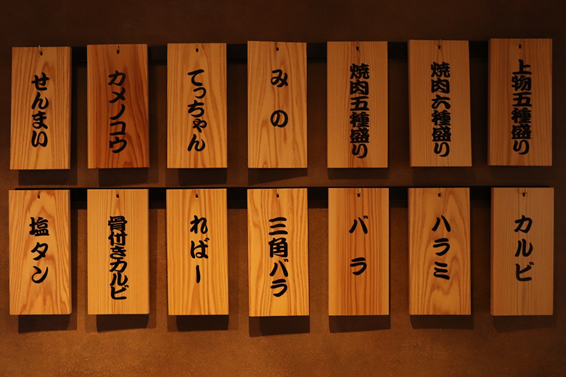 上物五種盛り
焼肉六種盛り
焼肉五種盛り
みの
てっちゃん
カメノコウ
せんまい
カルビ
ハラミ
バラ
三角バラ
ればー
骨付きカルビ
塩タン